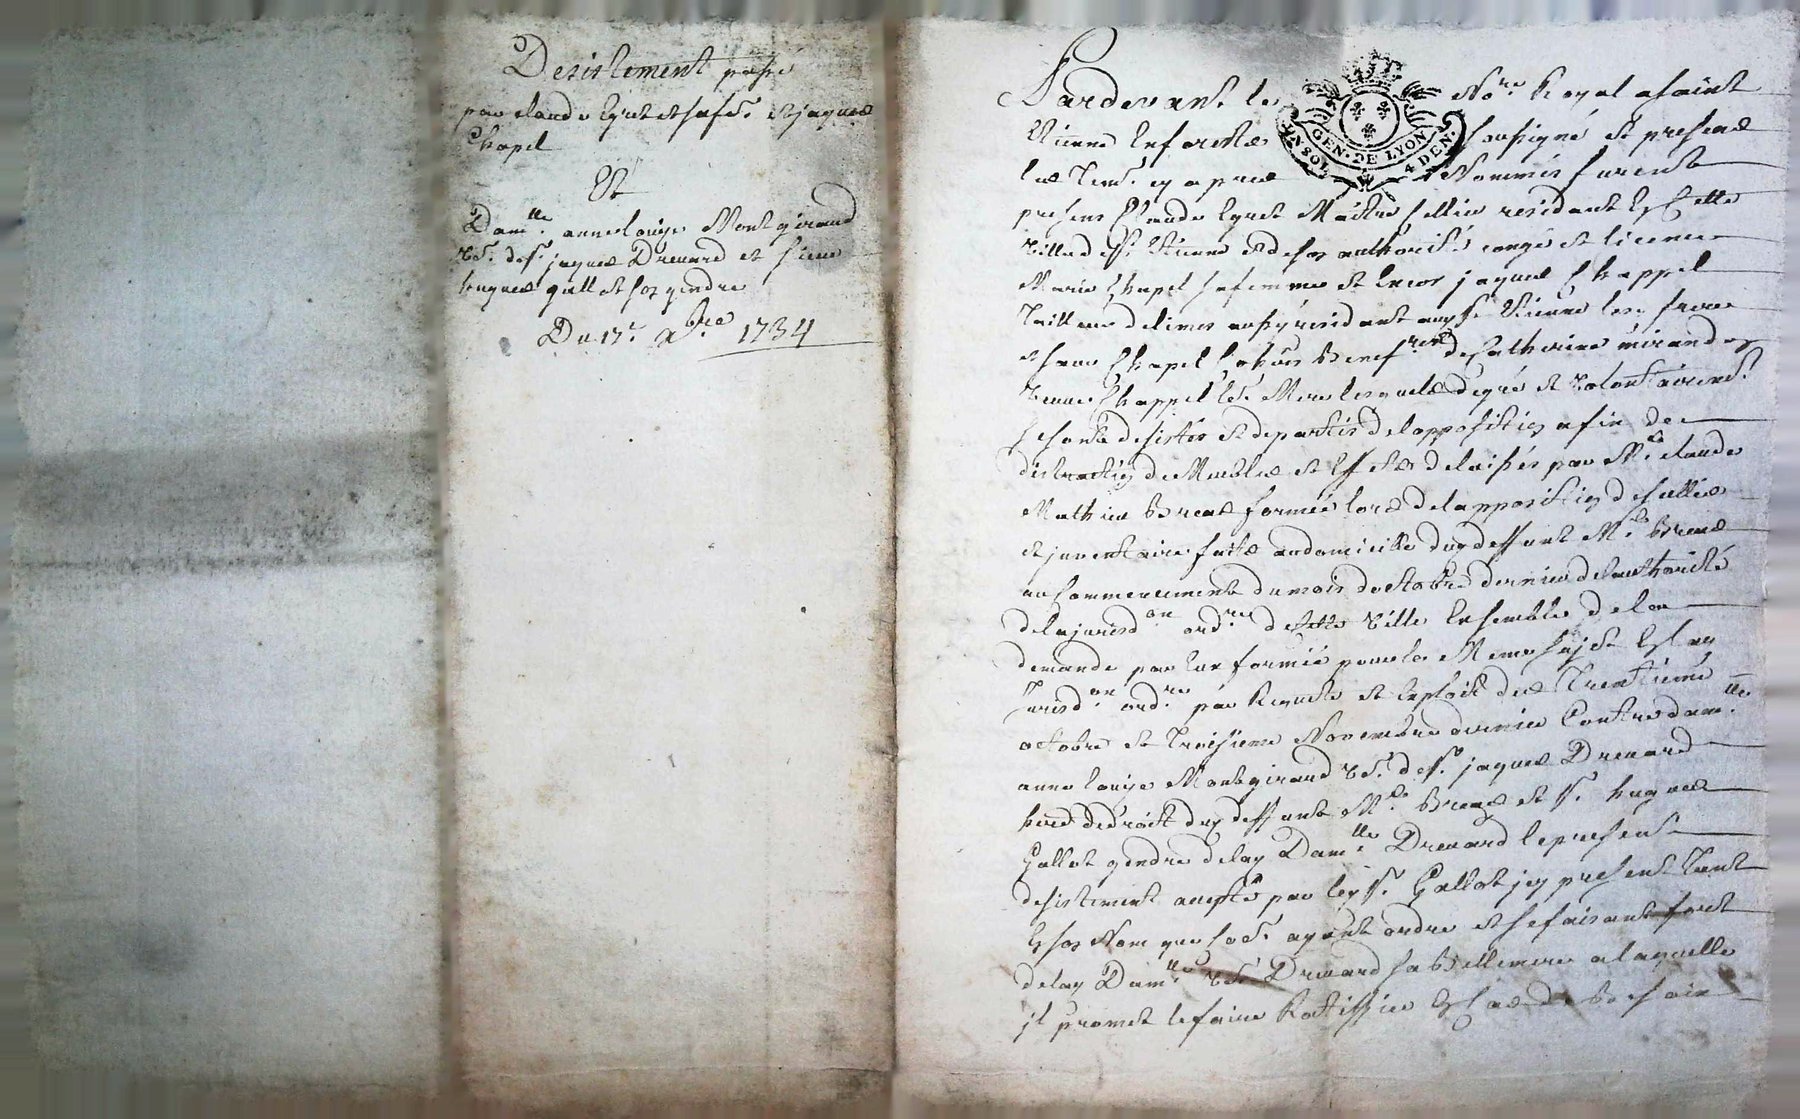 Desistement passé
par claude Eynt et sa fe. et jaques
Chapel
Et
Damlle. anne louise Montgirand
Ve. de sr. jaques Drevard et sieur
hugues gallot son gendre
Du 17e. Xbre 1734
Pardevant le Nore. Royal a saint
GEN. DE LYON
4 DEN.
soussigné et presens
les Tem. cy apres Nommés furent
presens Claude Eynt Maitre sellier residant En cette
Ville de st. de son authorité congé et licence
Marie Chapel sa femme et Encor jaques Chappel
Tailleur aussy residant
Chapel de Catherine
Chappel leur Mere lesquels de gré et volontairement
se sont desistés et departis de l'opposition afin de
distraction de Meubles et Effets delaissés par Me. claude
Mathieu formée lors de l'apposition de scellés
et jnventaire faits au domicille dud deffunt Me.
au commencement du mois d'octobre dernier de l'authorité
de la jurisdon. ordre. de cette ville Ensemble de la
demande par Eux formée pour le Meme sujet En lad
Jurisdon. ordre. par Requete et Exploit des Trentieme
octobre et Troisieme Novembre dernier Contre damlle.
anne louise Montgirand Ve. de sr. jaques Drevard
de droit dud deffunt Me. et sr. hugues
Gallot gendre de lad Damlle. Drevard le present
desistement accepté par led sr. Gallot jcy present Tant
En son Nom que ayant ordre et se faisant fort
de lad Damlle. Ve. Drevard sa Bellemere a laquelle
jl promet le faire Rattiffier En cas de Besoin